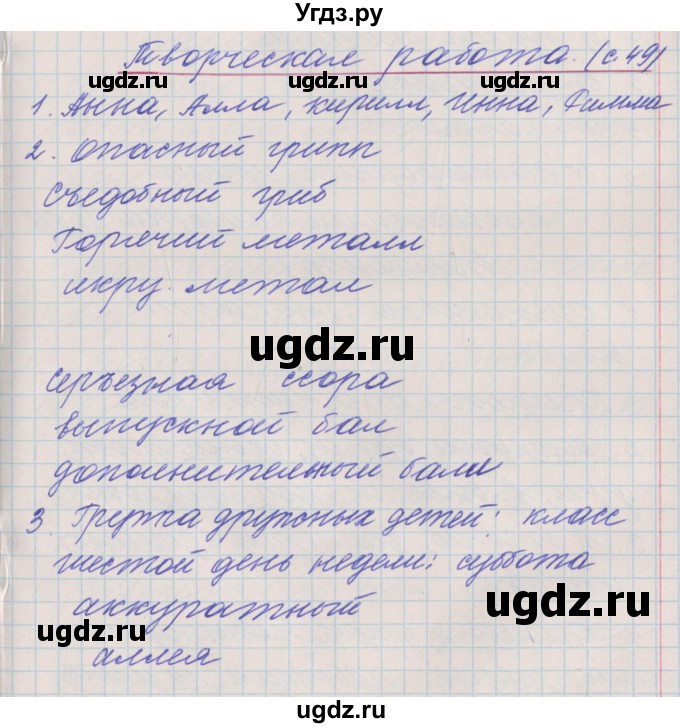 Угдз.ру
Творческая работа. (с. 49)
ugdz.ru ugdz.ru
1. Анна, Алла, Кирилл, Инна, Римма
2. Опасный грипп
Съедобный гриб
Горячий металл
икру метал
ugdz.ru
Серъезная ссора
выпускной бал
дополнительный балл
3. Группа дружных детей: класс
шестой день недели: суббота
аккуратный
ugdz.ru ugdz.ru
аллея
ugdz.ru